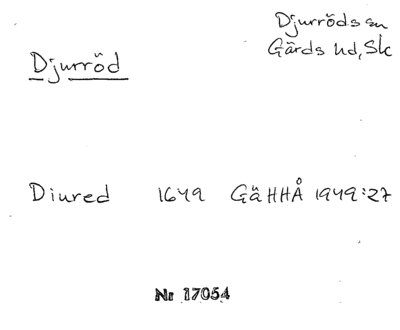 Djurröds sn
Gärds hd, Sk
Djurröd
Diured 1649 GäHHÅ 1949:27
Nr 17054